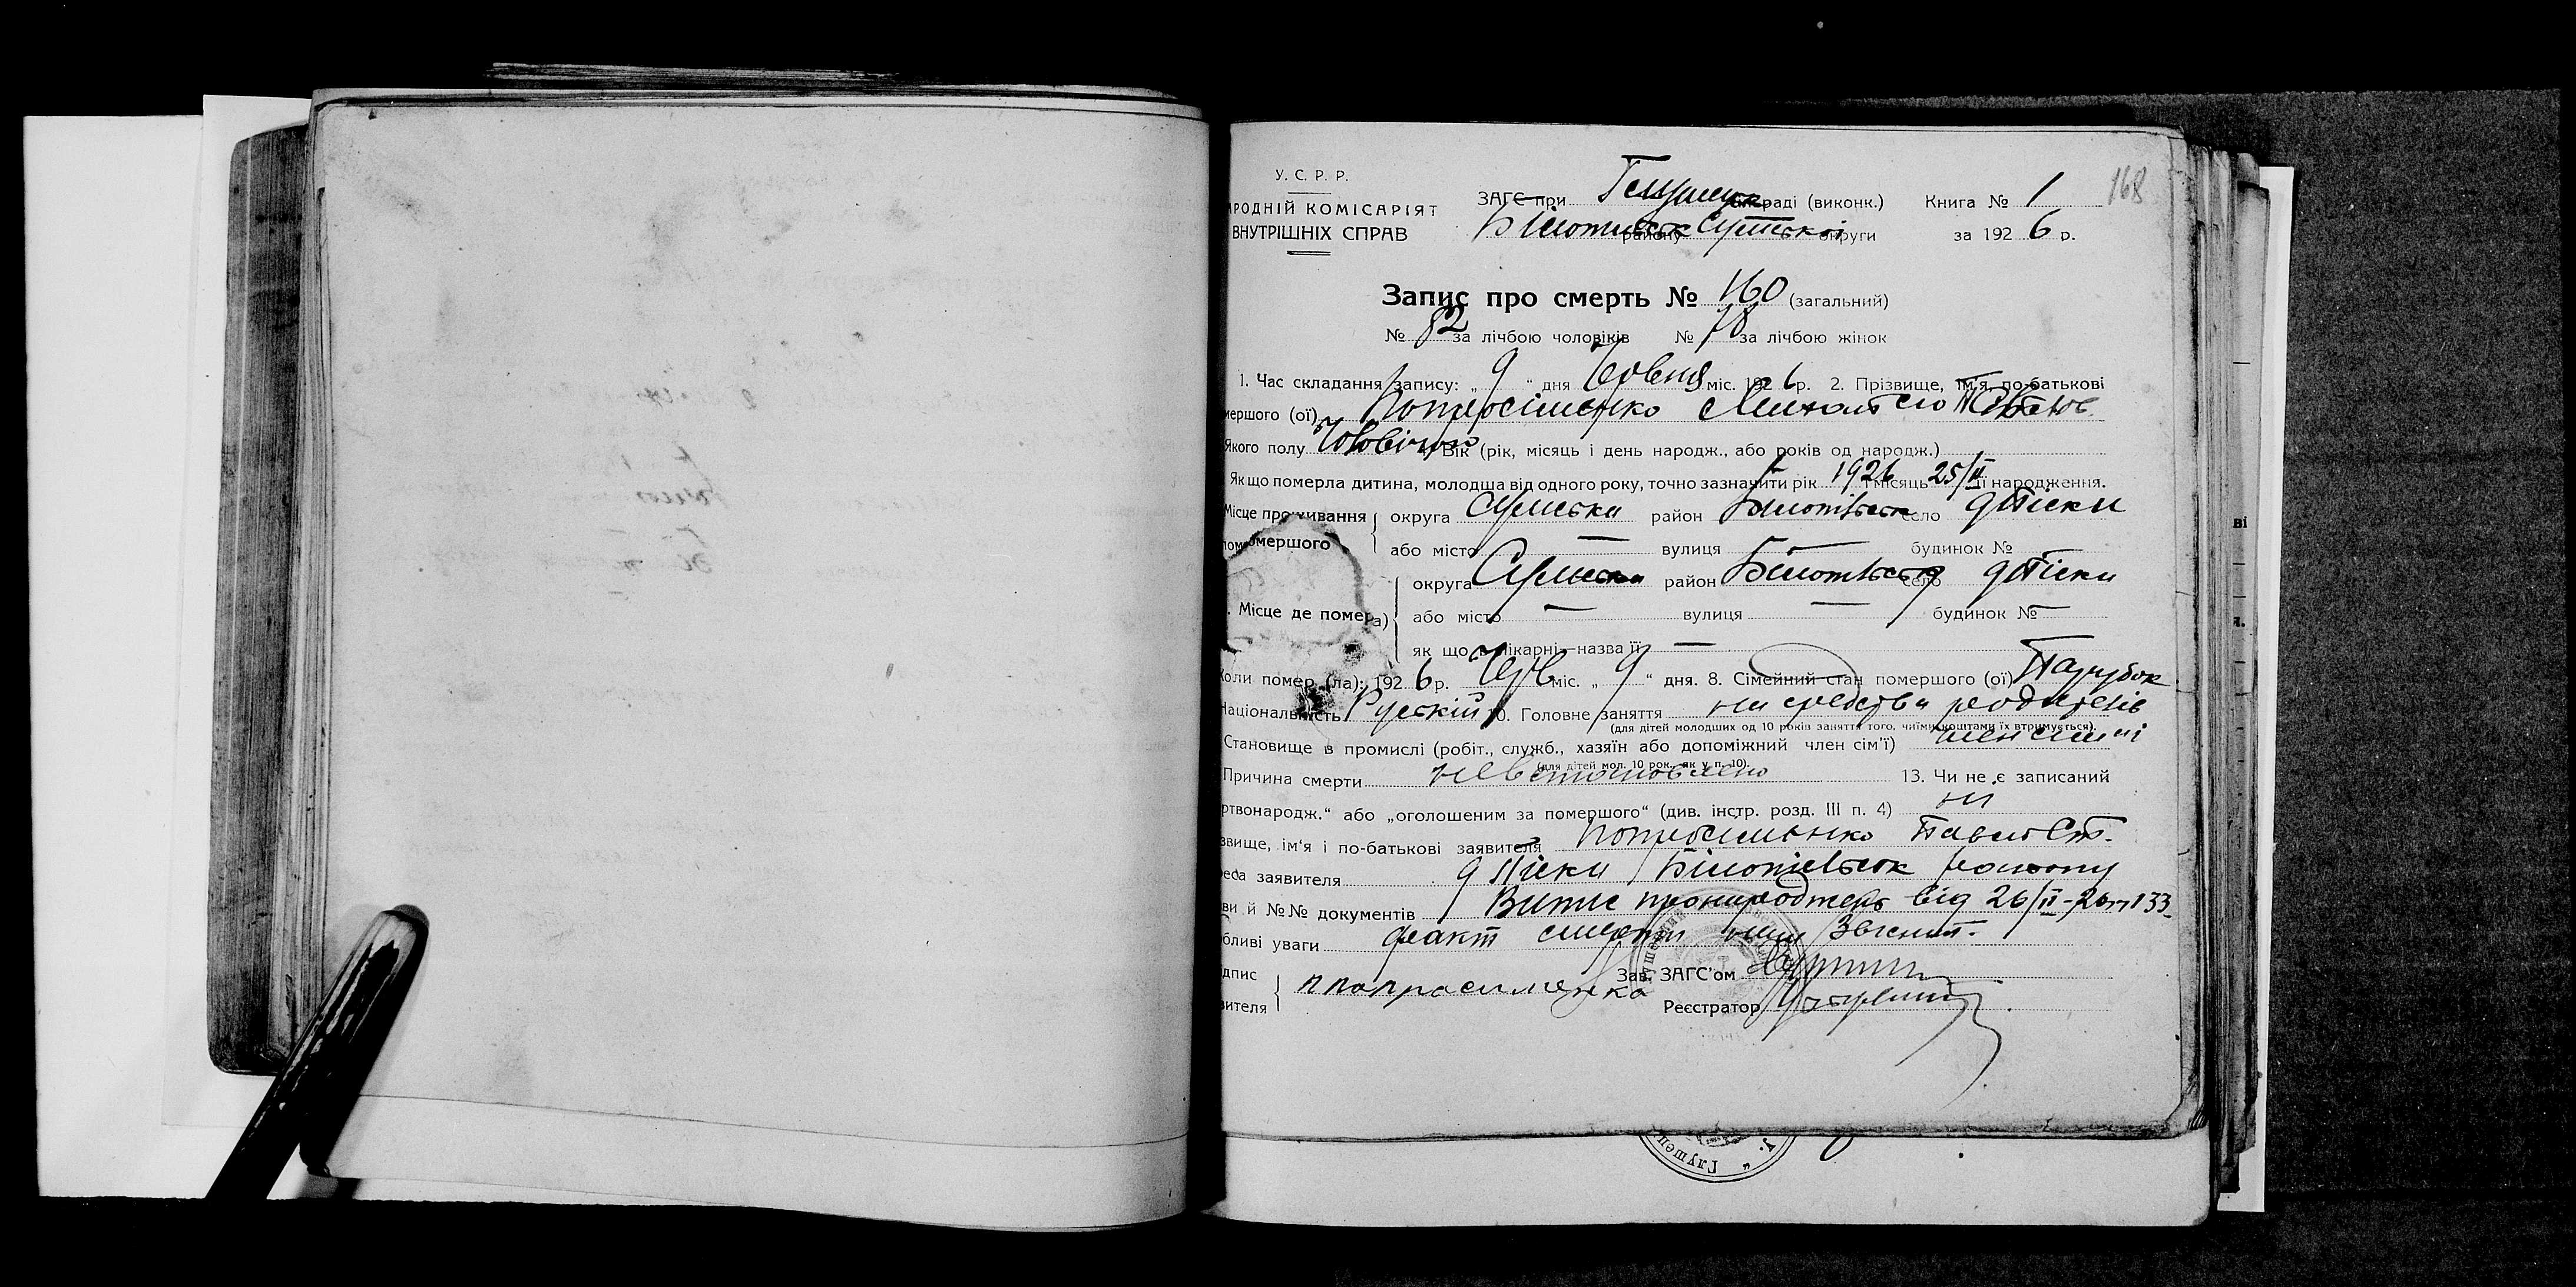 168
У. С. Р. Р.
РОДНІЙ КОМІСАРІЯТ
ВНУТРІШНІХ СПРАВ
ЗАГС при раді (виконк.) Книга № 1
району Сумської округи за 1926 р.
Запис про смерть № 160 (загальний)
№ 82 за лічбою чоловіків № 78 за лічбою жінок
1. Час складання запису: „ 9 “ дня Червня міс. 1926 р. 2. Прізвище, ім'я, по-батькові
мершого (ої)
Якого полу Чоловічого Вік (рік, місяць і день народж., або років од народж.)
Якщо померла дитина, молодша від одного року, точно зазначити рік 1926 місяць 25/II її народження.
Місце проживання округа Сумська район село Піски
помершого
або місто — вулиця — будинок №
округа Сумська район село Піски
Місце де помер(а)
або місто — вулиця — будинок № —
як що в лікарні—назва її —
Коли помер (ла): 1926 р. Черв міс. „ 9 “ дня. 8. Сімейний стан помершого (ої) Парубок
Національність Рускій 10. Головне заняття на средства родителів
(для дітей молодших од 10 років заняття того, чиїми коштами їх втримується).
Становище в промислі (робіт., служб., хазяїн або допоміжний член сім'ї) член сімї
(для дітей мол. 10 рок., як у п. 10).
Причина смерти невстановлено 13. Чи не є записаний
ртвонародж.“ або „оголошеним за помершого“ (див. інстр. розд. III п. 4) ні
звище, ім'я і по-батькові заявителя Павел Ст.
еса заявителя Піски району
ви й №№ документів Випис від 26/II-26 133
бливі уваги факт смерти
дпис
вителя
Зав. ЗАГС'ом
Реєстратор